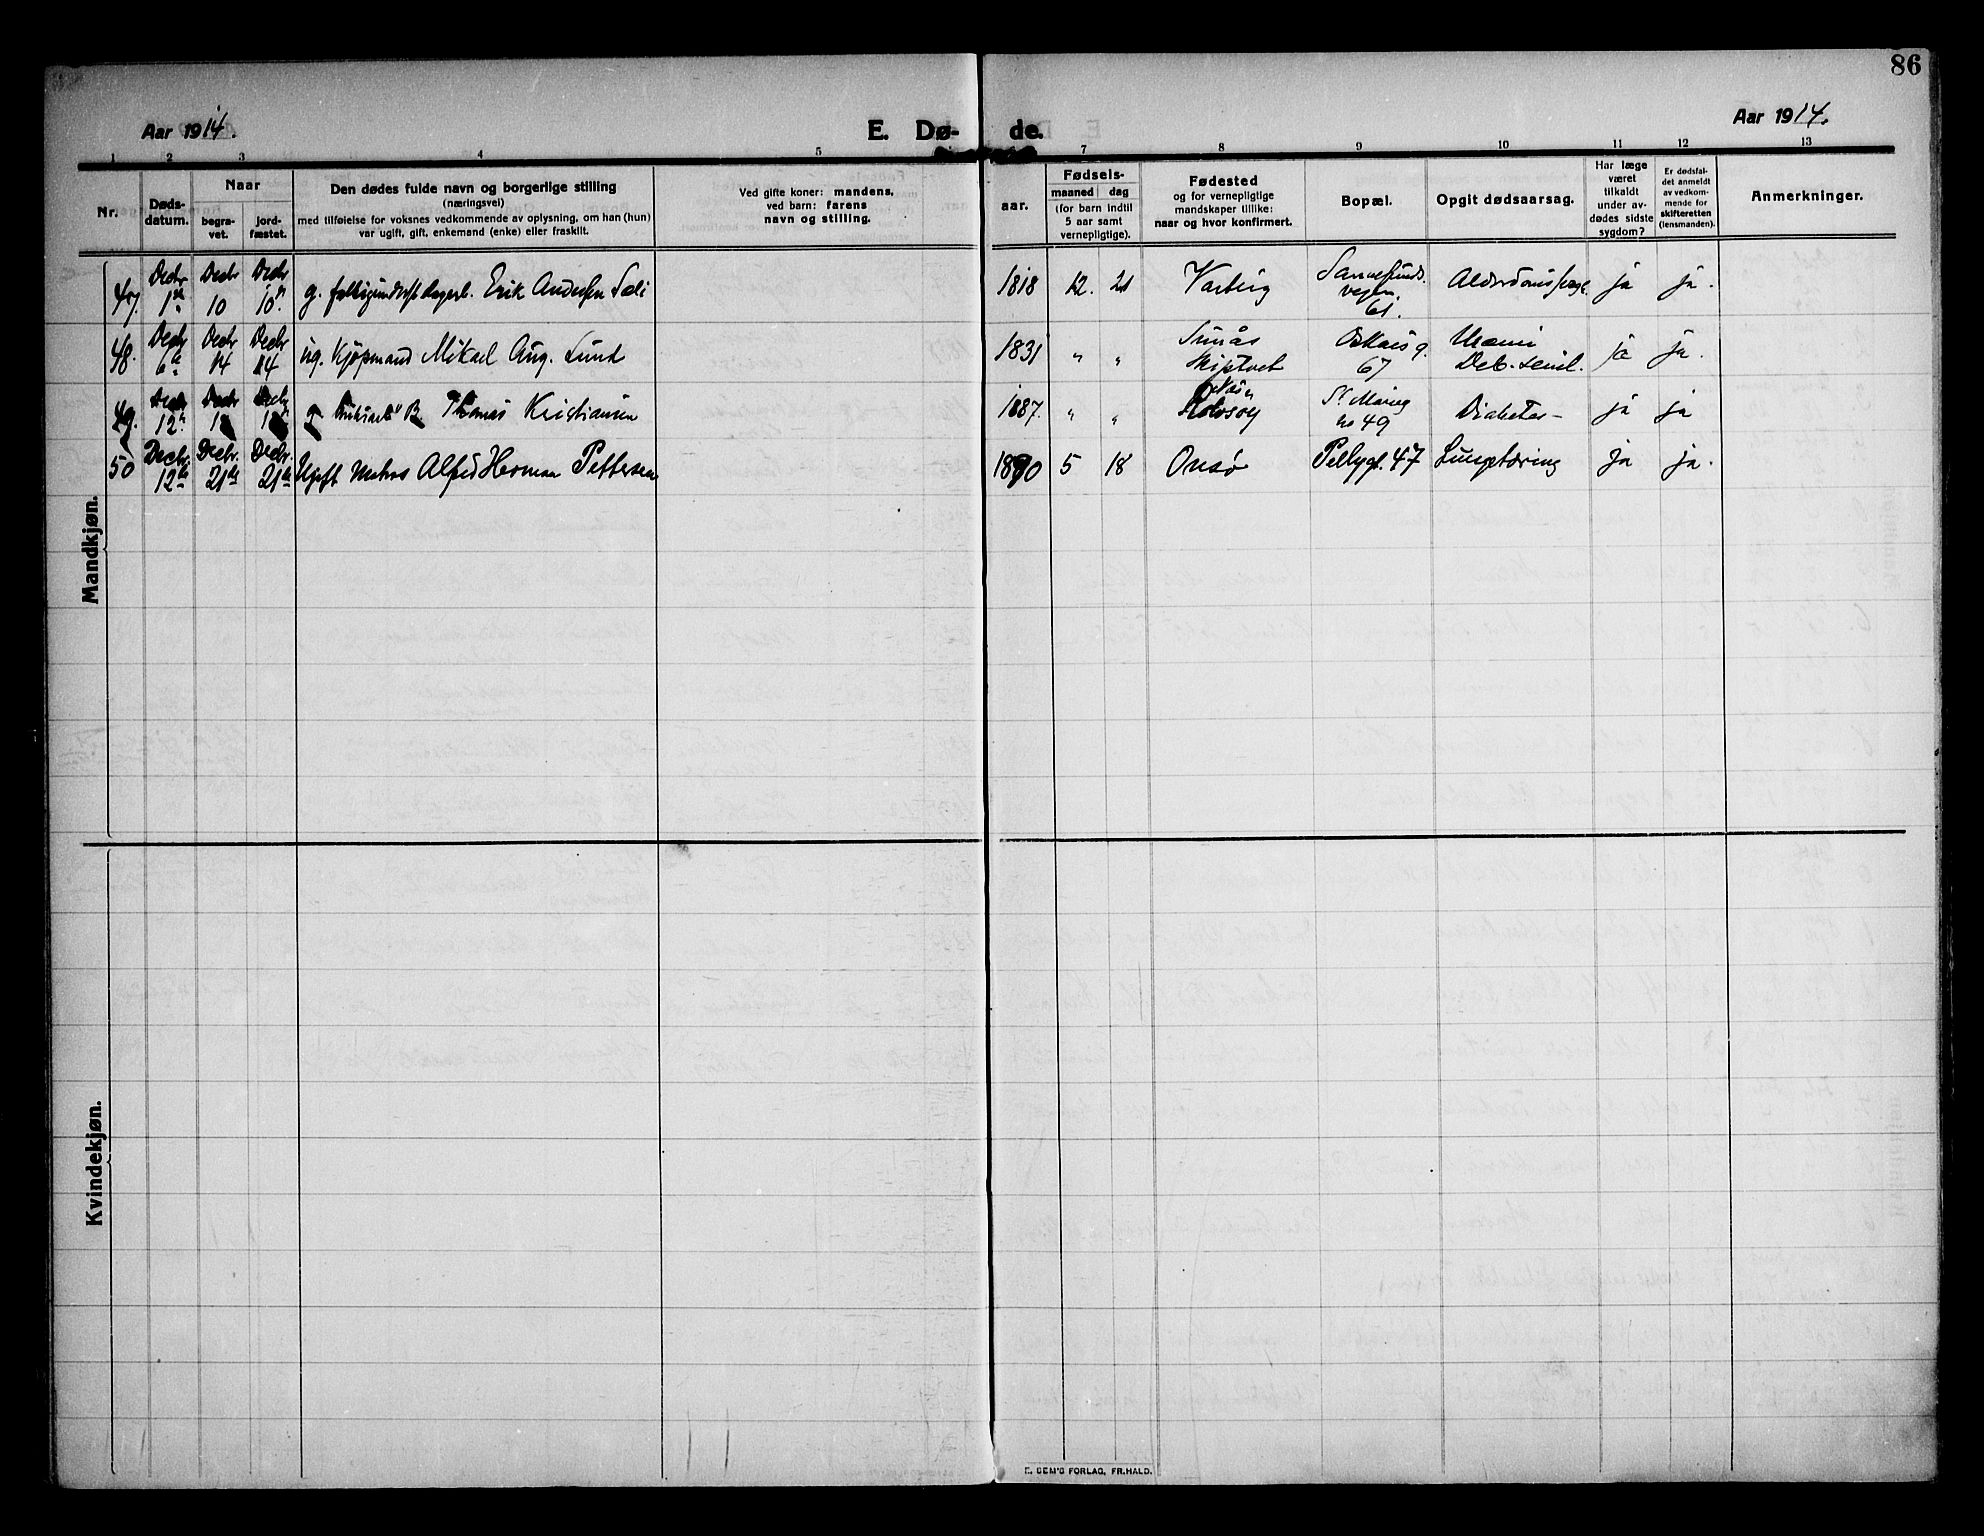 86
Aar 1914.
E. Dø-
de.
Aar 1914.
1 2 3 4 5 7 8 9 10 11 12 13
Nr.
Døds-
datum.
Naar
begra-
vet.
jord-
fæstet.
Den dødes fulde navn og borgerlige stilling
(næringsvei)
med tilføielse for voksnes vedkommende av oplysning, om han (hun)
var ugift, gift, enkemand (enke) eller fraskilt.
Ved gifte koner: mandens,
ved barn: farens
navn og stilling.
aar.
Fødsels-
maaned dag
(for barn indtil
5 aar samt
vernepligtige).
Fødested
og for vernepligtige
mandskaper tillike:
naar og hvor konfirmert.
Bopæl.
Opgit dødsaarsag.
Har læge
været
tilkaldt
under av-
dødes sidste
sygdom?
Er dødsfal-
det anmeldt
av vedkom-
mende for
skifteretten
(lensmanden).
Anmerkninger.
Mandkjøn.
47. Decbr 1 Decbr 10 Decbr 10 g. Erik Andersen 1818 12. 21 Varberg 61. ja ja.
48. Decbr 6 Decbr 14 Decbr 14 ug. Kjøpmand Mikael Aug. Lund 1831 " " Skiptvet 67 Uræmi Deb. senil. ja ja.
49. Decbr 12 Decbr Decbr g Thomas Kristiansen 1887. " " St. Marieg no 49 Diabetes - ja ja
50 Decbr. 12te Decbr. 21de Decbr. 21de Ugift Matros Alfred Herman Pettersen 1890 5 18 Onsø 47 Lungetæring ja ja.
Kvindekjøn.
E. SEM'S FORLAG, FR.HALD.